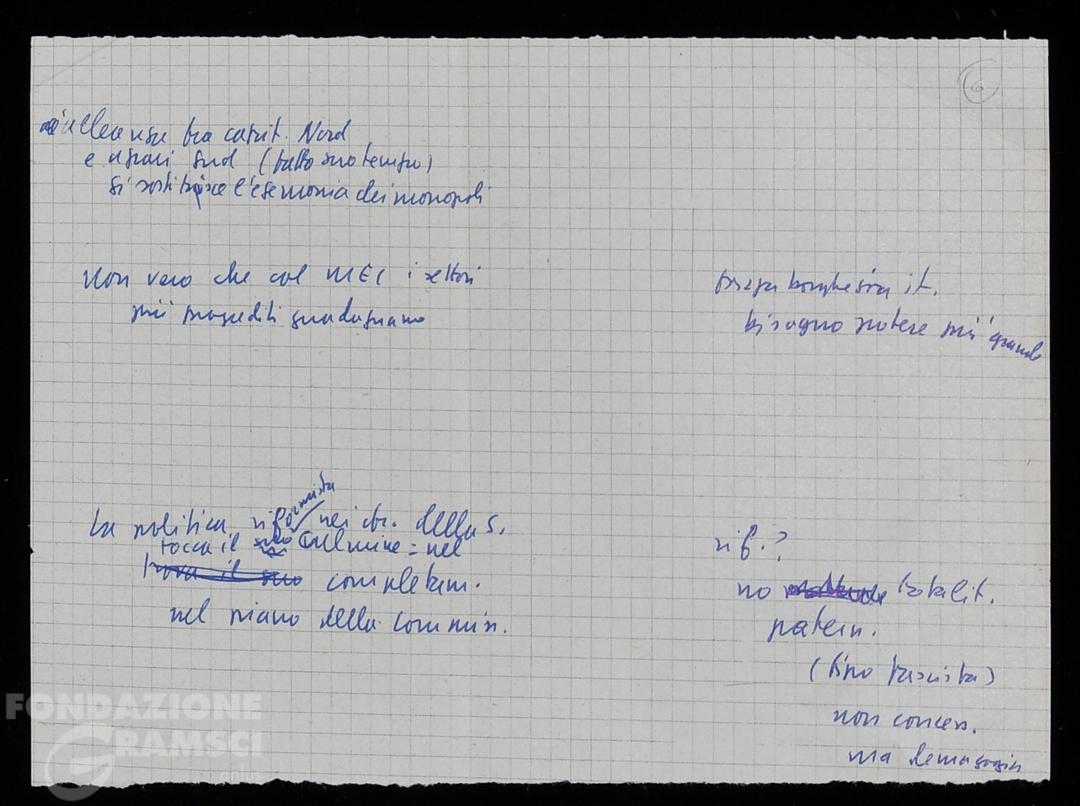 6
alleanza tra capit. Nord
e agrari Sud (fatto suo tempo)
si sostituisce l'egemonia dei monopoli
Non vero che col MEC i settori
più progrediti guadagnano
borghesia it.
bisogno potere più grande
La politica riformista nei cfr. della S.
tocca il culmine = nel
trova il suo completam.
nel piano della commiss.
rif. ?
no totalit.
patern.
(tipo fascista)
non concess.
ma demagogia
FONDAZIONE
GRAMSCI
ONLUS